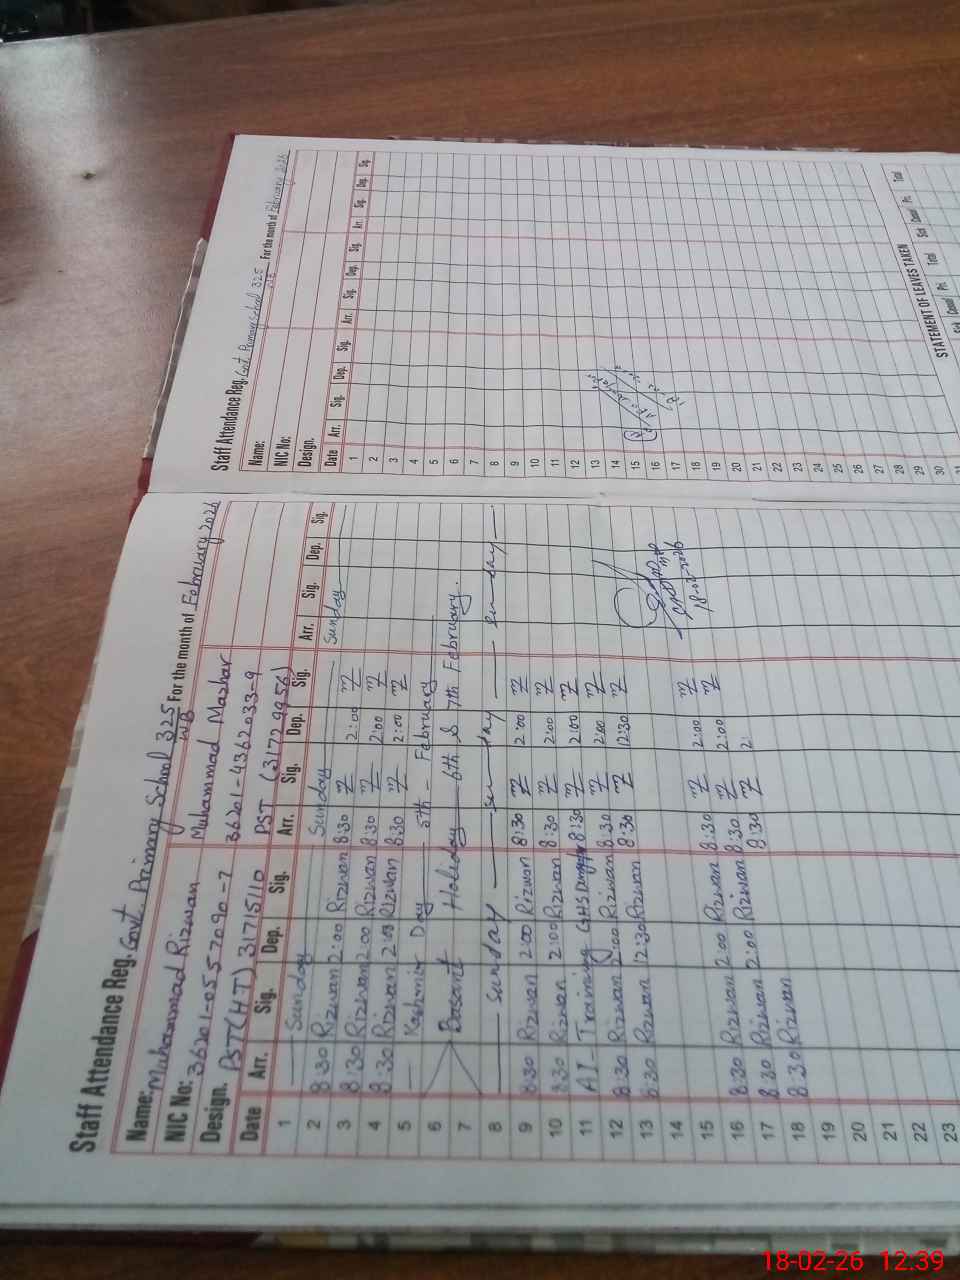 Staff Attendance Reg. Govt. Primary School 325 WB For the month of February 2026
Name: Muhammad Rizwan Muhammad Mazhar
NIC No: 36201-0557090-7 36201-4362033-9
Design. PST(HT) 31715110 PST (31729956)
Date Arr. Sig. Dep. Sig. Arr. Sig. Dep. Sig. Arr. Sig. Dep. Sig.
1 Sunday Sunday Sunday
2 8:30 Rizwan 2:00 Rizwan 8:30 2:00
3 8:30 Rizwan 2:00 Rizwan 8:30 2:00
4 8:30 Rizwan 2:00 Rizwan 8:30 2:00
5 Kashmir Day 5th - February
6
7 Basant Holiday 6th & 7th February.
8 Sunday Sunday Sunday
9 8:30 Rizwan 2:00 Rizwan 8:30 2:00
10 8:30 Rizwan 2:00 Rizwan 8:30 2:00
11 AI - Training GHS 8:30 2:00
12 8:30 Rizwan 2:00 Rizwan 8:30 2:00
13 8:30 Rizwan 12:30 Rizwan 8:30 12:30
14
15
16 8:30 Rizwan 2:00 Rizwan 8:30 2:00
17 8:30 Rizwan 2:00 Rizwan 8:30 2:00
18 8:30 Rizwan 8:30 2:
19
20
21
22
23
18-02-2026
Staff Attendance Reg. Govt Primary School 325 WB For the month of February 2026
Name:
NIC No:
Design.
Date Arr. Sig. Dep. Sig. Arr. Sig. Dep. Sig. Arr. Sig. Dep. Sig.
1
2
3
4
5
6
7
8
9
10
11
12
13
14
15
16
17
18
19
20
21
22
23
24
25
26
27
28
29
30
31
STATEMENT OF LEAVES TAKEN
Sick Casual Pri. Total Sick Casual Pri. Total
18-02-26 12:39